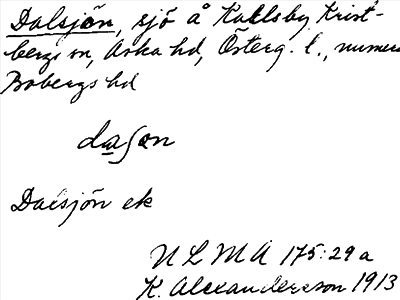 Dalsjön, sjö å Kallsby, Krist-
bergs sn, Aska hd, Österg. l., numera
Bobergs hd
dasɷn
Dalsjön ek
ULMA 175:29a
K. Alexandersson 1913